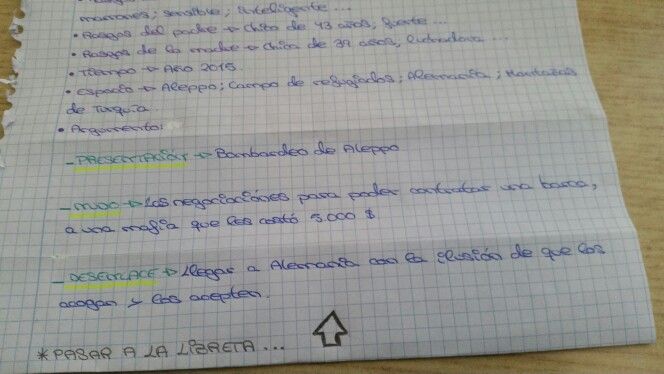 marrones; sensitive; inteligente...
• Rasgos del padre → Chico de 43 años, fuerte...
• Rasgos de la madre → Chica de 39 años, luchadora...
• Tiempo → Año 2015.
• Espacio → Aleppo; Campo de refugiados; Alemania; Montañas
de Turquía.
• Argumento:
- PRESENTACIÓN → Bombardeo de Aleppo
- NUDO → Las negociaciónes para poder contratar una barca,
a una mafia que les costó 5.000 $
- DESENLACE → Llegar a Alemania con la ilusión de que los
acogan y los acepten.
* PASAR A LA LIBRETA...